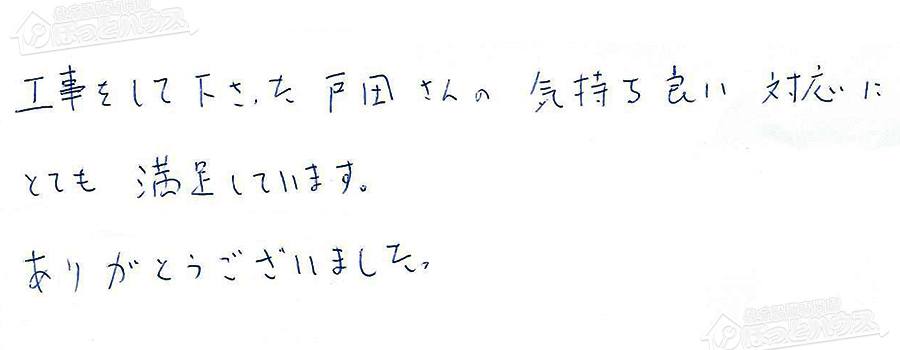 工事をして下さった戸田さんの 気持ち良い 対応に
とても 満足しています。
ありがとうございました。
ほっとハウス
ほっとハウス